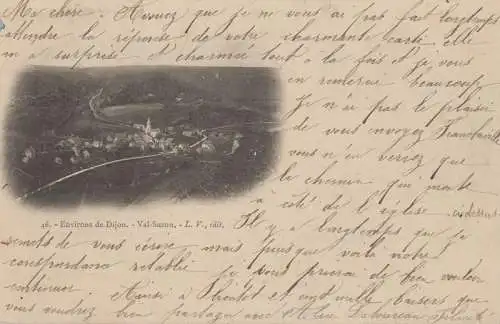 Ma chère. Avouez que je ne vous ai pas fait longtemps
attendre la réponse de votre charmante carte elle
m'a surprise et charmée tout à la fois et je vous
en remercie beaucoup
Je n'ai pas le plaisir
de vous envoyer
en verrez que
le chemin qui monte
à côté de l'église
ci dessus
46. - Environs de Dijon. - Val-Suzon. - L. V., édit.
Il y a longtemps que je
de vous écrire, mais puisque voilà notre
correspondance rétablie je vous prierai de bien vouloir
continuer. et cent mille baisers que
vous voudrez bien partager avec